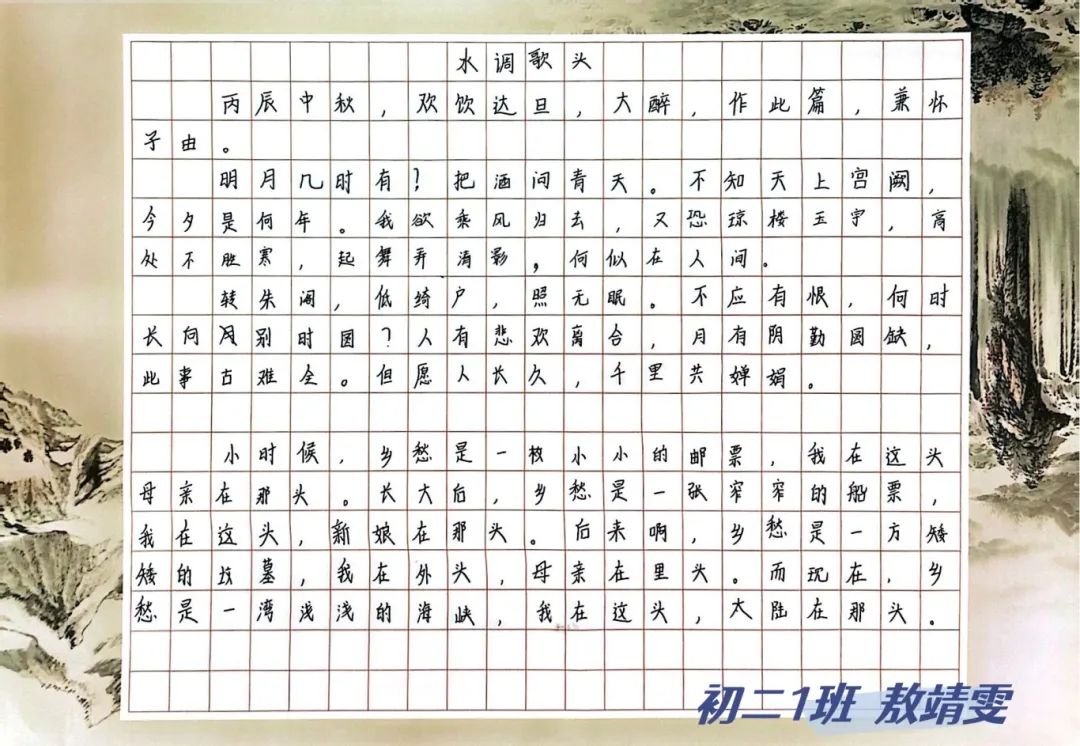 水调歌头
丙辰中秋,欢饮达旦,大醉,作此篇,兼怀
子由。
明月几时有?把酒问青天。不知天上宫阙,
今夕是何年。我欲乘风归去,又恐琼楼玉宇,高
处不胜寒,起舞弄清影,何似在人间。
转朱阁,低绮户,照无眠。不应有恨,何时
长向月别时圆?人有悲欢离合,月有阴勤圆缺,
此事古难全。但愿人长久,千里共婵娟。
小时候,乡愁是一枚小小的邮票,我在这头
母亲在那头。长大后,乡愁是一张窄窄的船票,
我在这头,新娘在那头。后来啊,乡愁是一方矮
矮的坟墓,我在外头,母亲在里头。而现在,乡
愁是一湾浅浅的海峡,我在这头,大陆在那头。
初二1班 敖靖雯